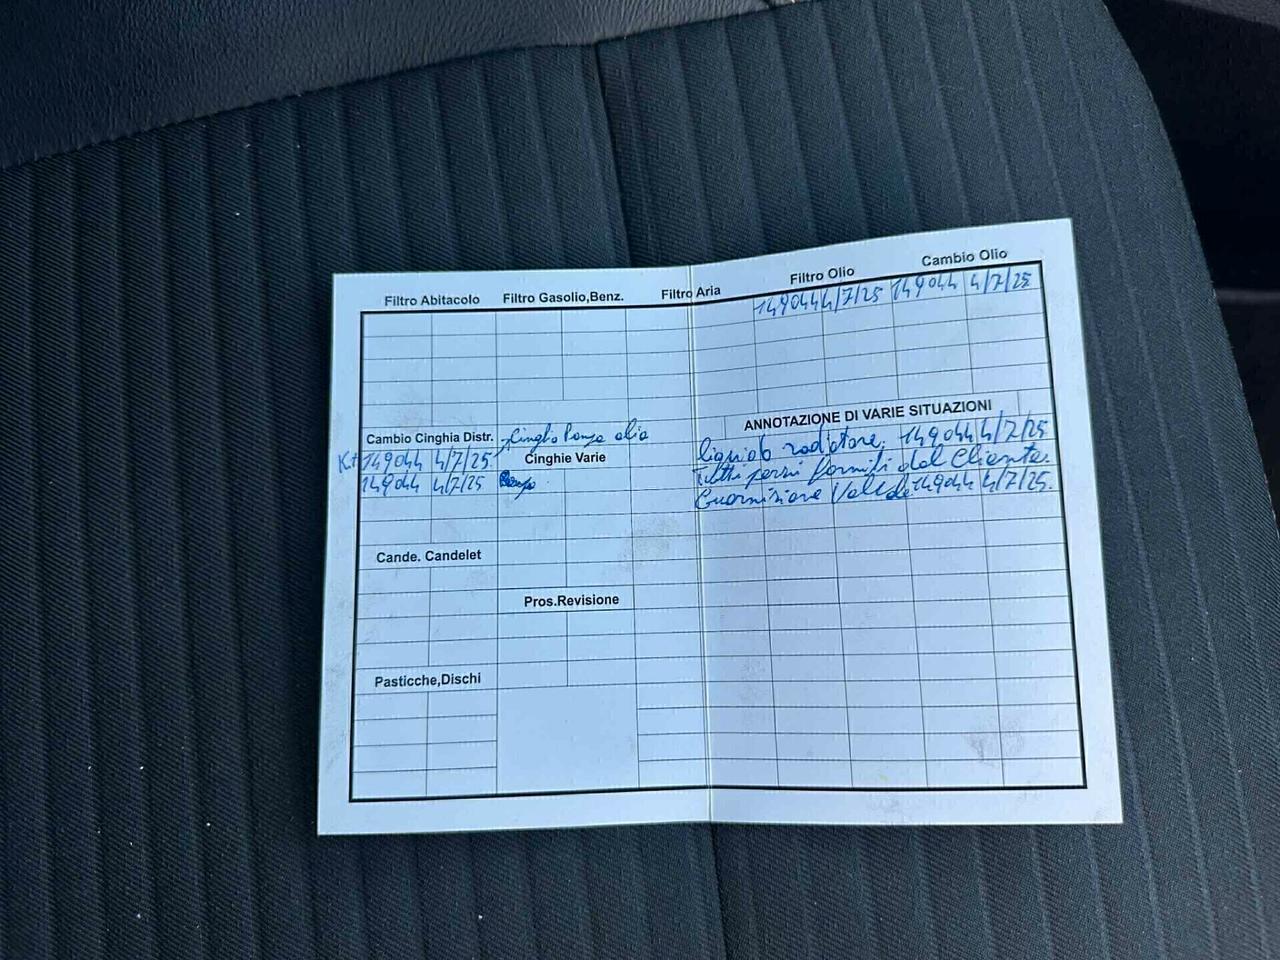 Filtro Abitacolo Filtro Gasolio,Benz. Filtro Aria Filtro Olio Cambio Olio
149044 4/7/25 149044 4/7/25
ANNOTAZIONE DI VARIE SITUAZIONI
Cambio Cinghia Distr. Cinghia Pompa olio
liquido radiatore. 149044 4/7/25
Cinghie Varie
Kit 149044 4/7/25
Tutti pezzi forniti dal Cliente.
149044 4/7/25
Guarnizione 149044 4/7/25.
Cande. Candelet
Pros.Revisione
Pasticche,Dischi